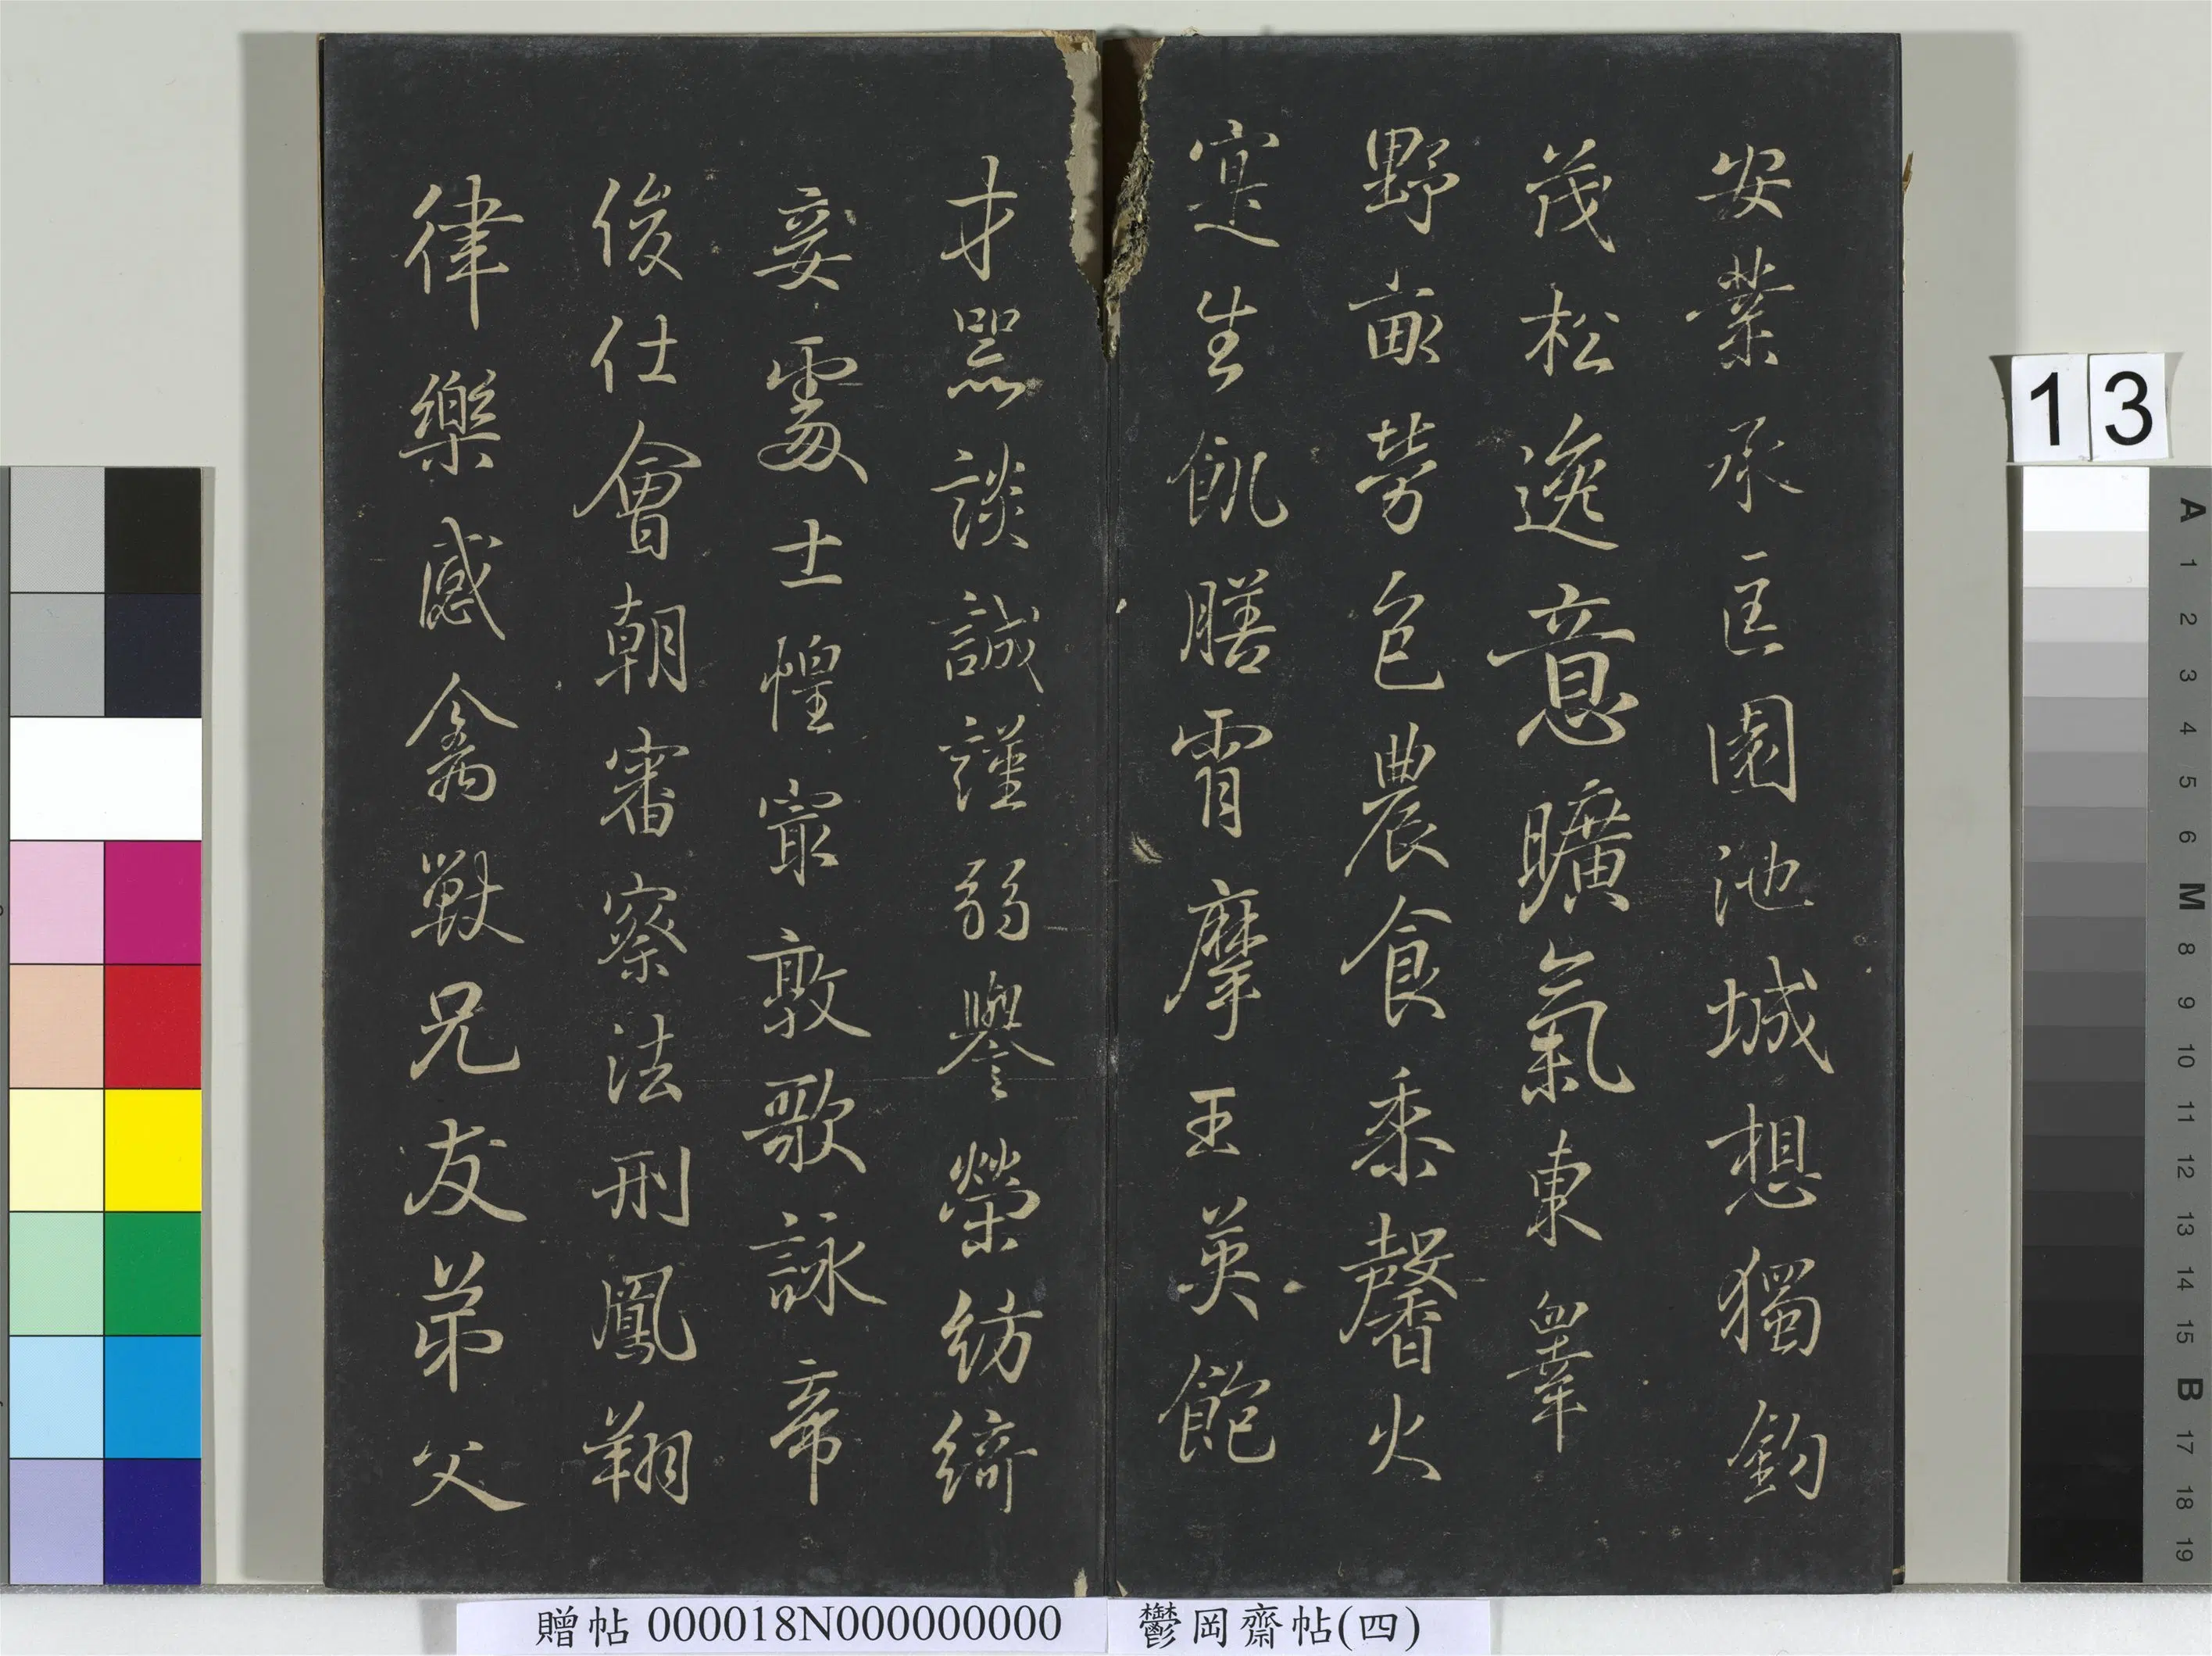 安業承匡園池城想獨鈞
茂松逸意曠氣東睾
野畝勞色農食黍馨火
寔生飢膳宵摩王英飽
才器談誠謹弱譽榮紡綺
妾處士惶㝡敦歌詠帝
俊仕會朝審察法刑鳳翔
律樂感禽獸兄友弟父
13
A 1 2 3 4 5 6 M 8 9 10 11 12 13 14 15 B 17 18 19
贈帖 000018N000000000
鬱岡齋帖(四)